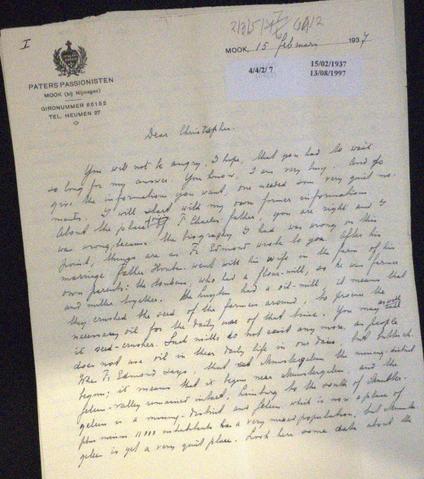 I
2/3/5/2
GA/2
PATERS PASSIONISTEN
MOOK (bij Nijmegen)
GIRONUMMER 65152
TEL. HEUMEN 27
MOOK, 15 februari 1937
4/4/2/ 7
15/02/1937
13/08/1997
Dear Christopher.
You will not be angry, I hope, that you had to wait
so long for my answer. You know, I am very busy. And to
give the information you want, one needed some very quiet mo-
ments. I will start with my own former information
About the place of F. Charles father, you are right and I
was wrong, because the biography I had was wrong on this
point, things are as Fr Edmond wrote to you. After his
marriage father Houben went with his wife in the farm of his
own parents: the Houbens, who had a flour-mill, so he was farmer
and miller together. The had a oil-mill, it means that
they crushed the seed of the farmers around, to procure the
necessary oil for the daily use of that time. You may
it seed-crusher. Such mills do not exist any more, as people
does not use oil in their daily life in our days
Like Fr Edmond says, that Munstergeleen the mining-district
began; it means that it began near Munstergeleen, and the
Geleen-valley remained intact, to the south of
geleen is a mining-district and Geleen which is now a place of
plus minus 11.000 inhabitants has a very mixed population, but Munster-
geleen is yet a very quiet place. Look here some data about the